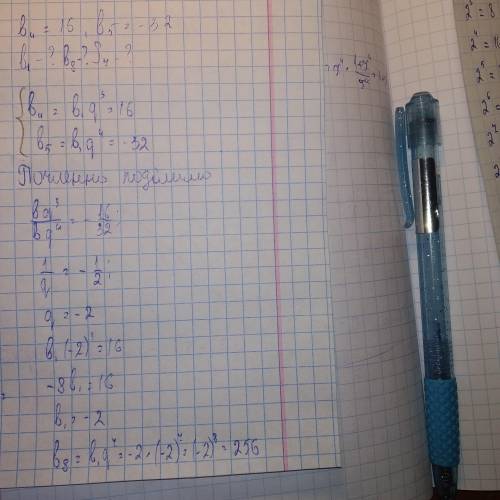 b₄ = 16, b₅ = -32
b₁ - ? b₈ - ? S₇ - ?
b₄ = b₁q³ = 16
b₅ = b₁q⁴ = -32
Почленно поделимо
bq³/bq⁴ = -16/32
1/q = -1/2
q = -2
b₁(-2)³ = 16
-8b₁ = 16
b₁ = -2
b₈ = b₁q⁷ = -2 · (-2)⁷ = (-2)⁸ = 256
2³ = 8
2⁴ = 16
2⁵ =
2⁶ =
2⁷